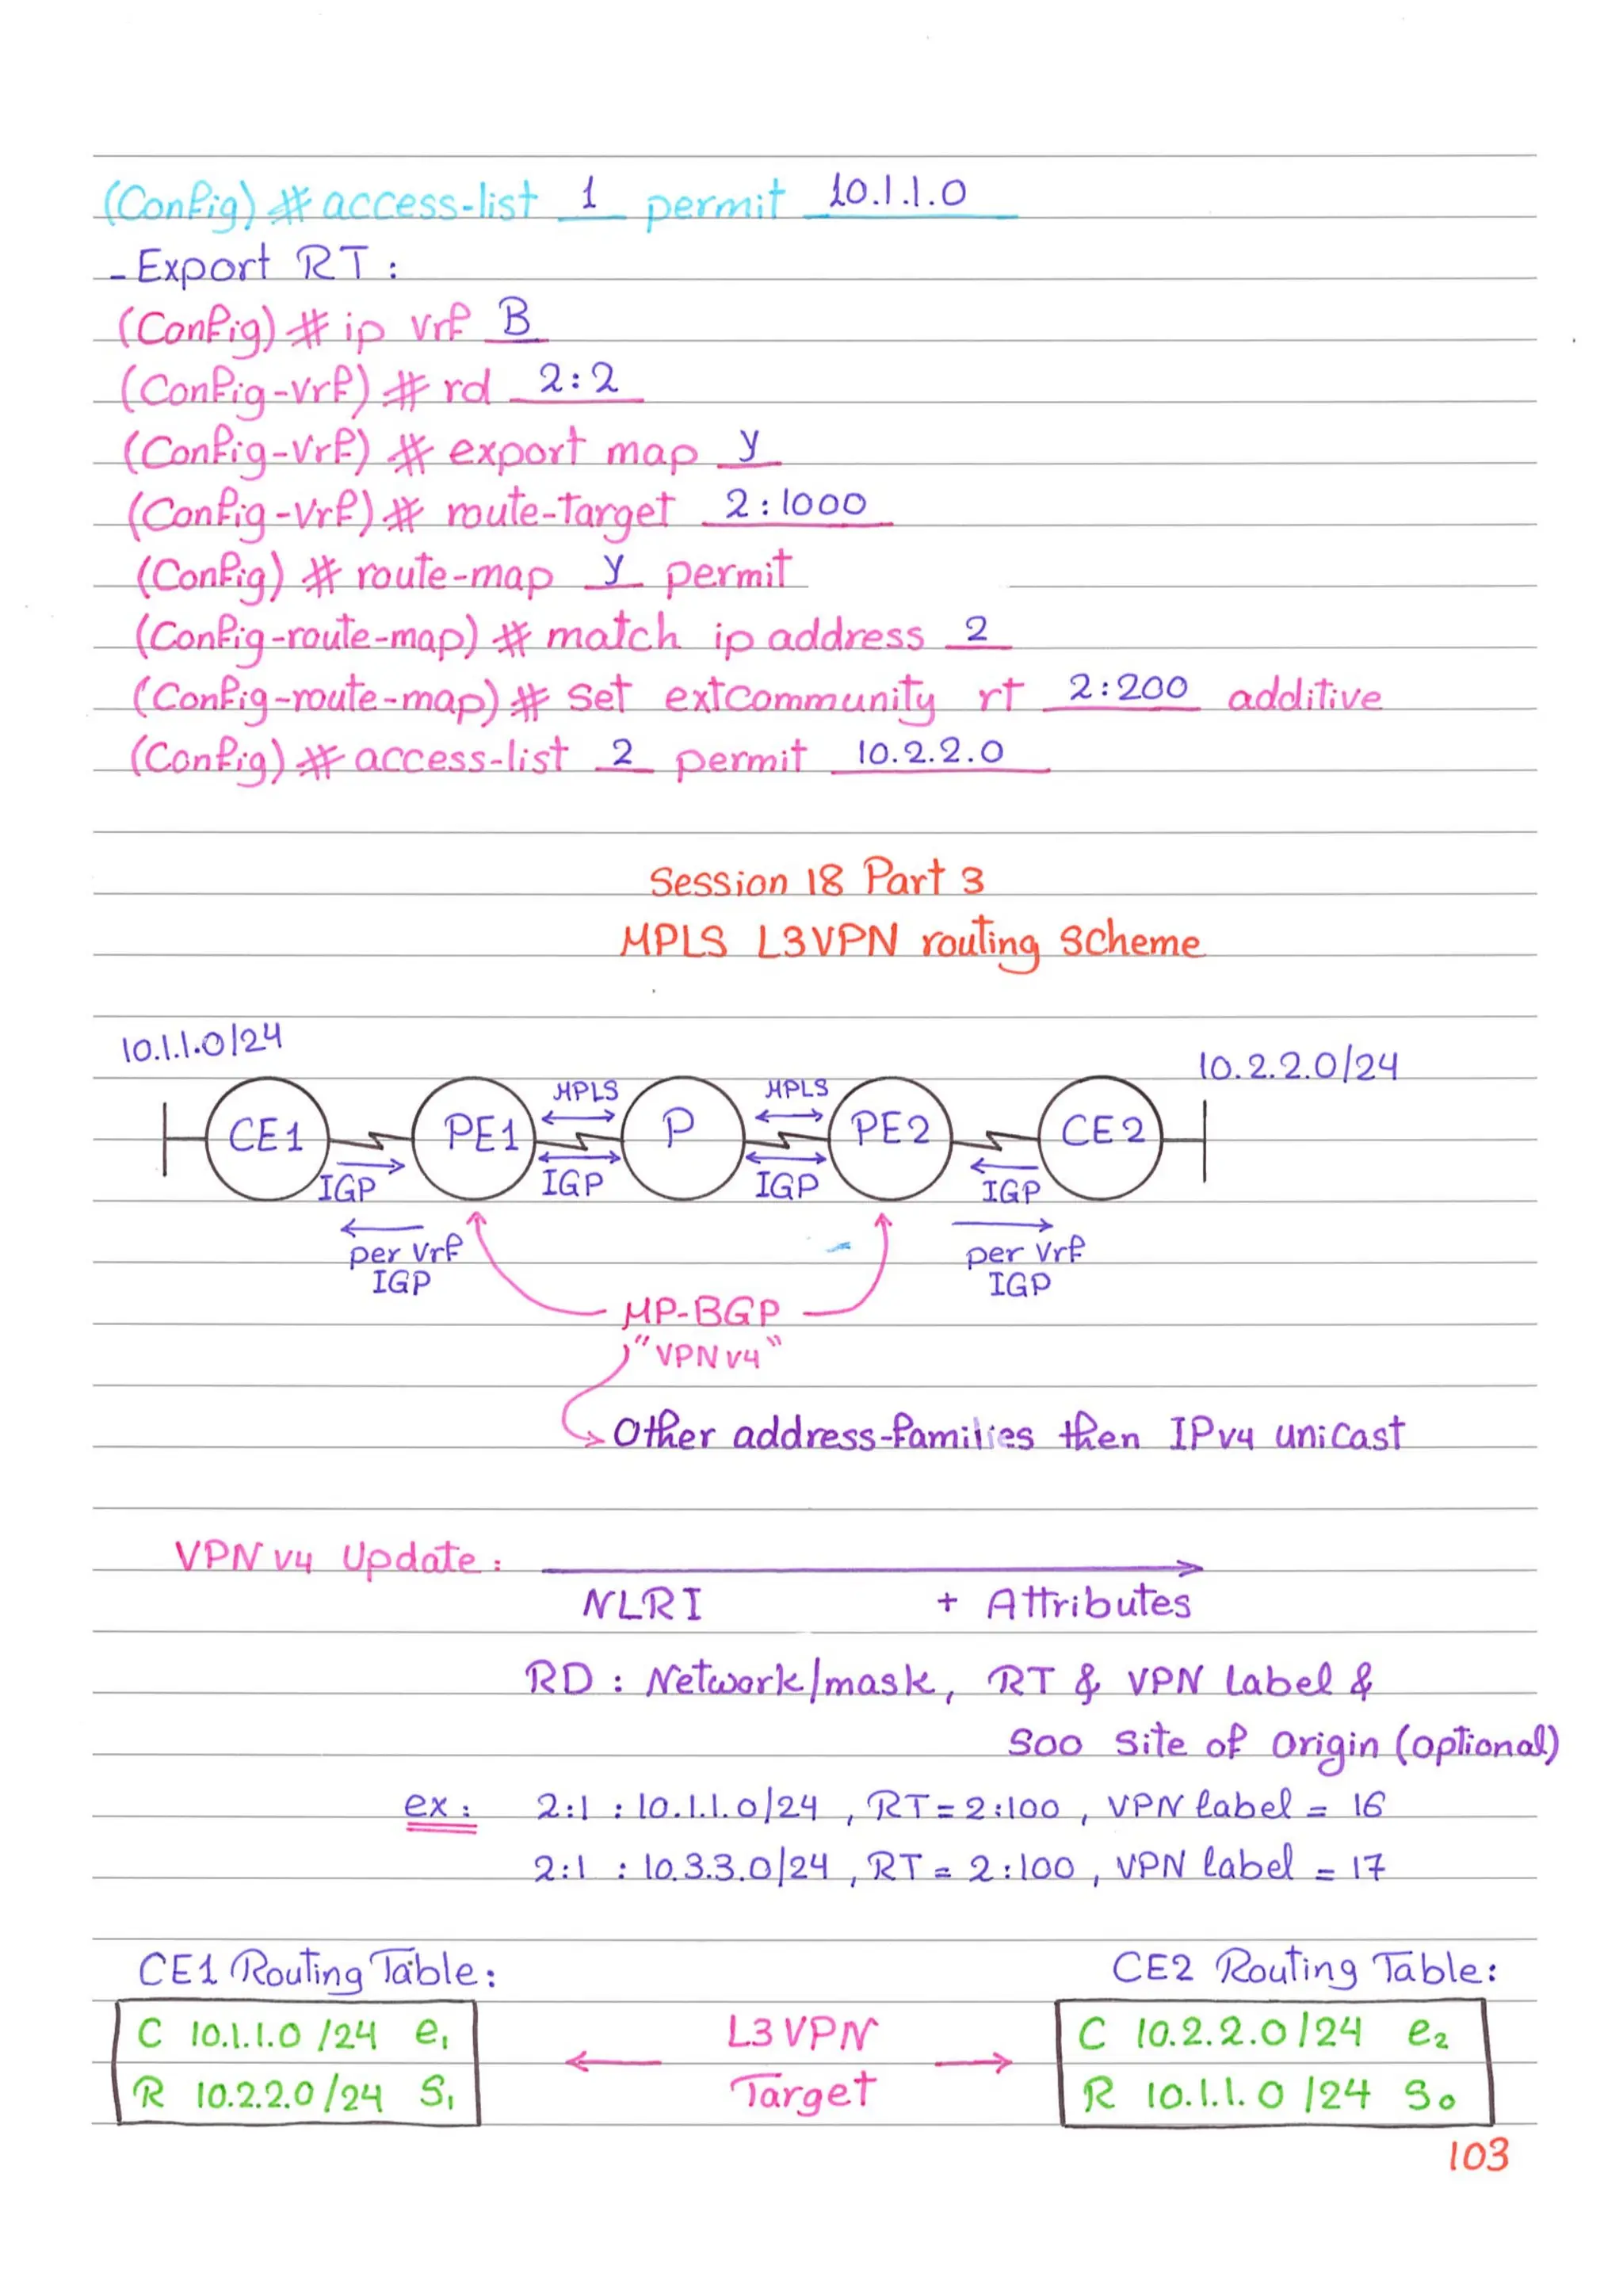 (Config) # access-list 1 permit 10.1.1.0
- Export RT :
(Config) # ip vrf B
(Config-vrf) # rd 2:2
(Config-vrf) # export map y
(Config-vrf) # route-target 2:1000
(Config) # route-map y permit
(Config-route-map) # match ip address 2
(Config-route-map) # set extcommunity rt 2:200 additive
(Config) # access-list 2 permit 10.2.2.0
Session 18 Part 3
MPLS L3VPN routing scheme
10.1.1.0/24
10.2.2.0/24
MPLS MPLS
CE1 PE1 P PE2 CE2
IGP IGP IGP IGP
per vrf per vrf
IGP IGP
MP-BGP
"VPNv4"
Other address-families then IPv4 unicast
VPNv4 Update :
NLRI + Attributes
RD : Network/mask, RT & VPN Label &
SOO Site of Origin (optional)
ex : 2:1 : 10.1.1.0/24 , RT = 2:100 , VPN label = 16
2:1 : 10.3.3.0/24 , RT = 2:100 , VPN label = 17
CE1 Routing Table: CE2 Routing Table:
C 10.1.1.0 /24 e1 L3VPN C 10.2.2.0/24 e2
R 10.2.2.0/24 S1 Target R 10.1.1.0 /24 S0
103